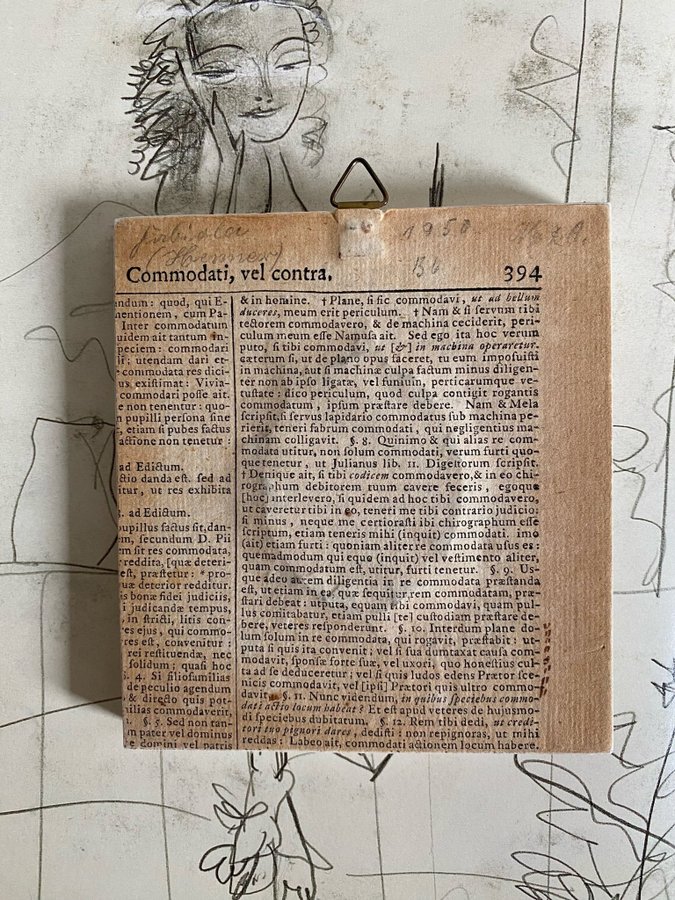 (Hennes)
1950
B6
Commodati, vel contra. 394
andum: quod, qui E-
mentionem, cum Pa-
Inter commodatum
uidem ait tantum in-
peciem: commodari
li; utendam dari et-
commodata res dici-
us existimat: Vivia-
commodari posse ait.
e non tenentur: quo-
n pupilli persona sine
, etiam si pubes factus
actione non tenetur:
ad Edictum.
ctio danda est. sed ad
itur, ut res exhibita
3. ad Edictum.
pupillus factus sit, dan-
m, secundum D. Pii
em sit res commodata,
reddita, [quæ deteri-
est, præstetur: * pro-
quæ deterior redditur.
is bonæ fidei judiciis,
i judicandæ tempus,
, in stricti, litis con-
es ejus, qui commo-
res est, convenitur:
rei restituendæ, nec
solidum; quasi hoc
. 4. Si filiofamilias
de peculio agendum
, & directo quis pot-
ilias commodaverit,
. §. 5. Sed non tan-
m pater vel dominus
e domini vel patris
& in homine. † Plane, si sic commodavi, ut ad bellum
duceres, meum erit periculum. † Nam & si servum tibi
tectorem commodavero, & de machina ceciderit, peri-
culum meum esse Namusa ait. Sed ego ita hoc verum
puto, si tibi commodavi, ut [&] in machina operaretur.
cæterum si, ut de plano opus faceret, tu eum imposuisti
in machina, aut si machinæ culpa factum minus diligen-
ter non ab ipso ligatæ, vel funium, perticarumque ve-
tustate: dico periculum, quod culpa contigit rogantis
commodatum, ipsum præstare debere. Nam & Mela
scripsit, si servus lapidario commodatus sub machina pe-
rierit, teneri fabrum commodati, qui negligentius ma-
chinam colligavit. §. 8. Quinimo & qui alias re com-
modata utitur, non solum commodati, verum furti quo-
que tenetur, ut Julianus lib. 11. Digestorum scripsit.
† Denique ait, si tibi codicem commodavero, & in eo chi-
rographum debitorem tuum cavere feceris, egoque
[hoc] interlevero, si quidem ad hoc tibi commodavero,
ut caveretur tibi in eo, teneri me tibi contrario judicio:
si minus, neque me certiorasti ibi chirographum esse
scriptum, etiam teneris mihi (inquit) commodati. imo
(ait) etiam furti: quoniam aliter re commodata usus es:
quemadmodum qui equo (inquit) vel vestimento aliter,
quam commodatum est, utitur, furti tenetur. §. 9. Us-
que adeo autem diligentia in re commodata præstanda
est, ut etiam in ea, quæ sequitur rem commodatam, præ-
stari debeat: utputa, equam tibi commodavi, quam pul-
lus comitabatur, etiam pulli [te] custodiam præstare de-
bere, veteres responderunt. §. 10. Interdum plane do-
lum solum in re commodata, qui rogavit, præstabit: ut-
puta si quis ita convenit: vel si sua dumtaxat causa com-
modavit, sponsæ forte suæ, vel uxori, quo honestius cul-
ta ad se deduceretur; vel si quis ludos edens Prætor sce-
nicis commodavit, vel [ipsi] Prætori quis ultro commo-
davit. §. 11. Nunc videndum, in quibus speciebus commo-
dati actio locum habeat? Et est apud veteres de hujusmo-
di speciebus dubitatum. §. 12. Rem tibi dedi, ut credi-
tori tuo pignori dares, dedisti: non repignoras, ut mihi
reddas: Labeo ait, commodati actionem locum habere.